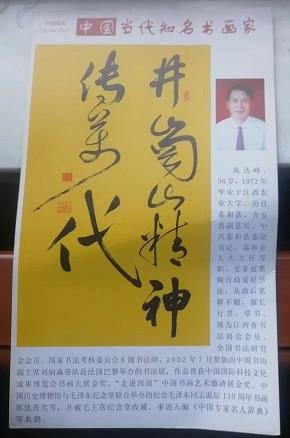 中国当代知名书画家
井岗山精神
传万代
陈达峰，
56岁，1972年
毕业于江西农
业大学，历任
泰和县、吉安
县副县长、中
共泰和县委副
书记，泰和县
人大主任等
职，受家庭熏
陶自幼爱好书
法，从政后笔
耕不辍，擅长
行书、草书。
现为江西省书
法协会会员、
全国书法研究
会会员、国家书法考核委员会8级书法师。2002年7月参加由中国书协
副主席刘炳森带队赴法国巴黎举办的书法展，作品曾获中国国际科文化
成果博览会书画大展金奖，“走进西部”中国书画艺术邀请展金奖，中
国历史博物馆与毛泽东纪念堂联合举办的纪念毛泽东诞辰110周年书画
展优秀奖等，并被毛主席纪念堂收藏。事迹入编《中国专家名人辞典》
等典籍。